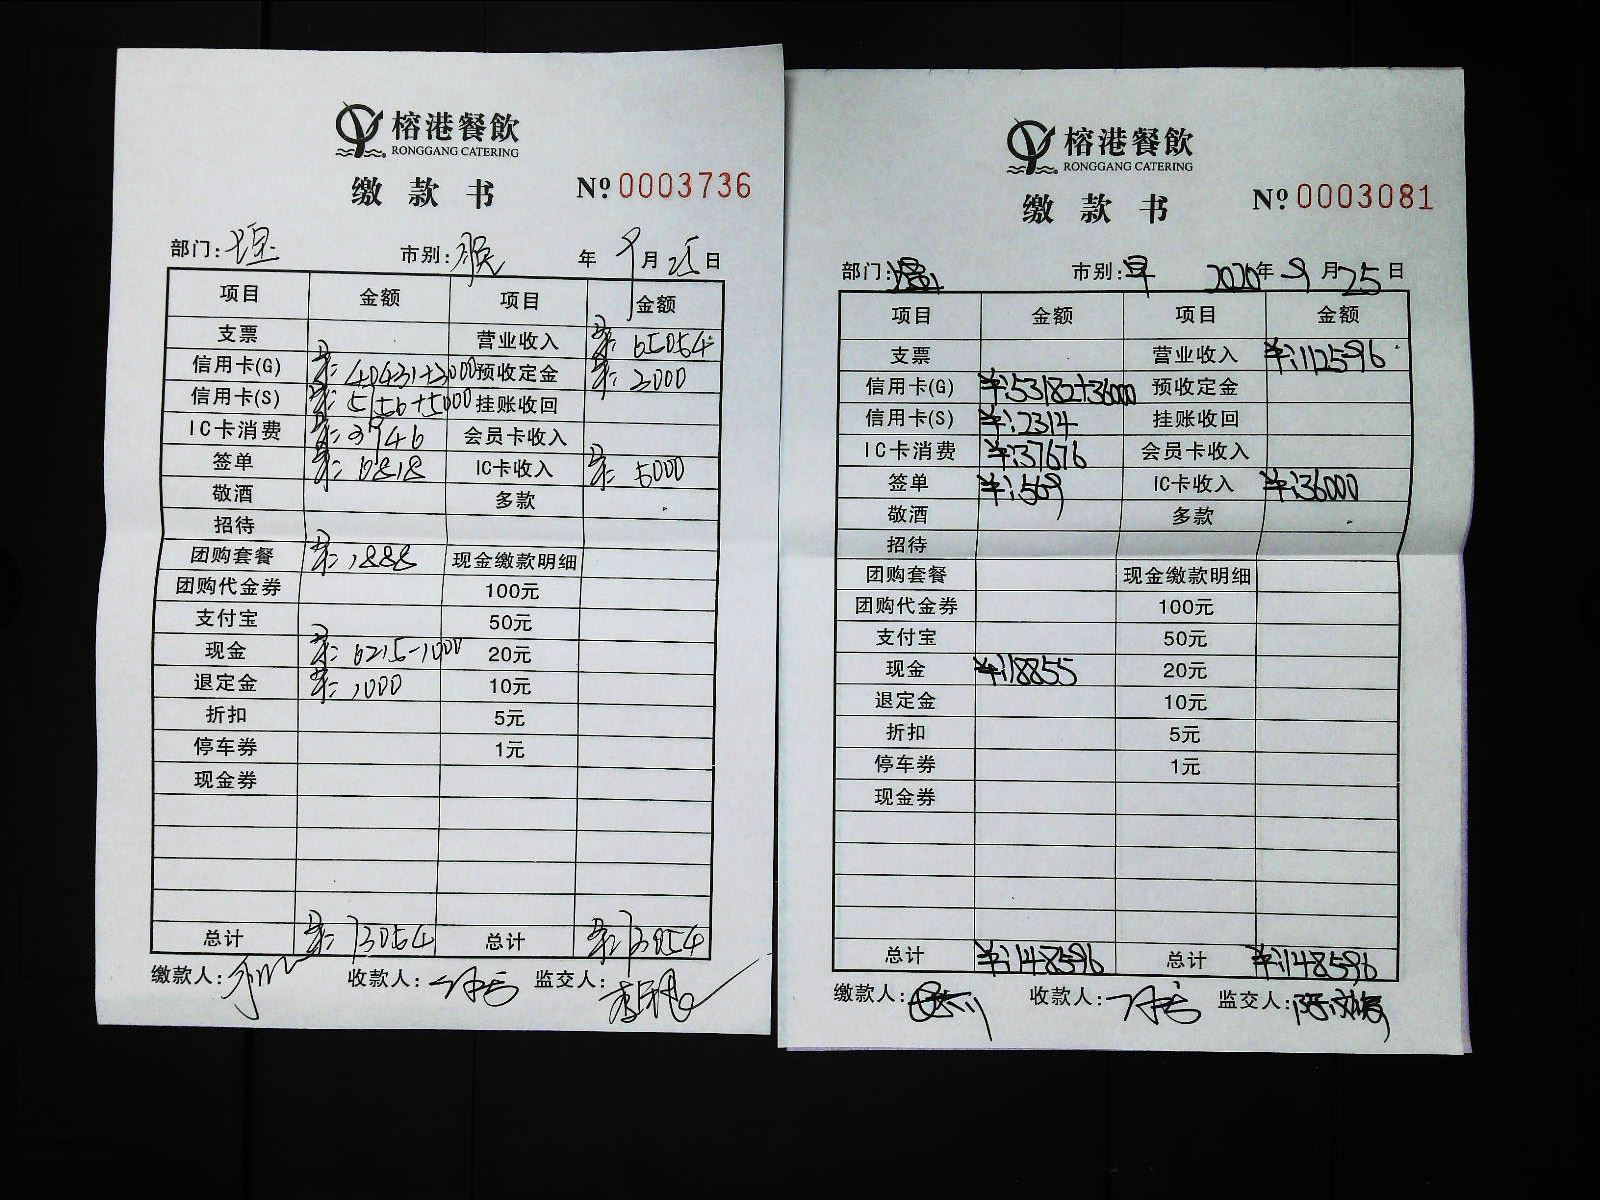 榕港餐飲
RONGGANG CATERING
缴款书 Nº 0003736
部门: 市别: 年 9月25日
项目 金额 项目 金额
支票 营业收入 65054
信用卡(G) 40431+3000 预收定金 3000
信用卡(S) 5156+5000 挂账收回
IC卡消费 3746 会员卡收入
签单 6818 IC卡收入 5000
敬酒 多款
招待
团购套餐 1888 现金缴款明细
团购代金券 100元
支付宝 50元
现金 6215-1000 20元
退定金 1000 10元
折扣 5元
停车券 1元
现金券
总计 73054 总计
缴款人: 收款人: 监交人:
榕港餐飲
RONGGANG CATERING
缴款书 Nº 0003081
部门: 市别:早 2020年9月25日
项目 金额 项目 金额
支票 营业收入 ¥:112596
信用卡(G) ¥:53182+36000 预收定金
信用卡(S) ¥:2314 挂账收回
IC卡消费 ¥:37676 会员卡收入
签单 ¥:569 IC卡收入 ¥:36000
敬酒 多款
招待
团购套餐 现金缴款明细
团购代金券 100元
支付宝 50元
现金 ¥:18855 20元
退定金 10元
折扣 5元
停车券 1元
现金券
总计 ¥:148596 总计 ¥:148596
缴款人: 收款人: 监交人: